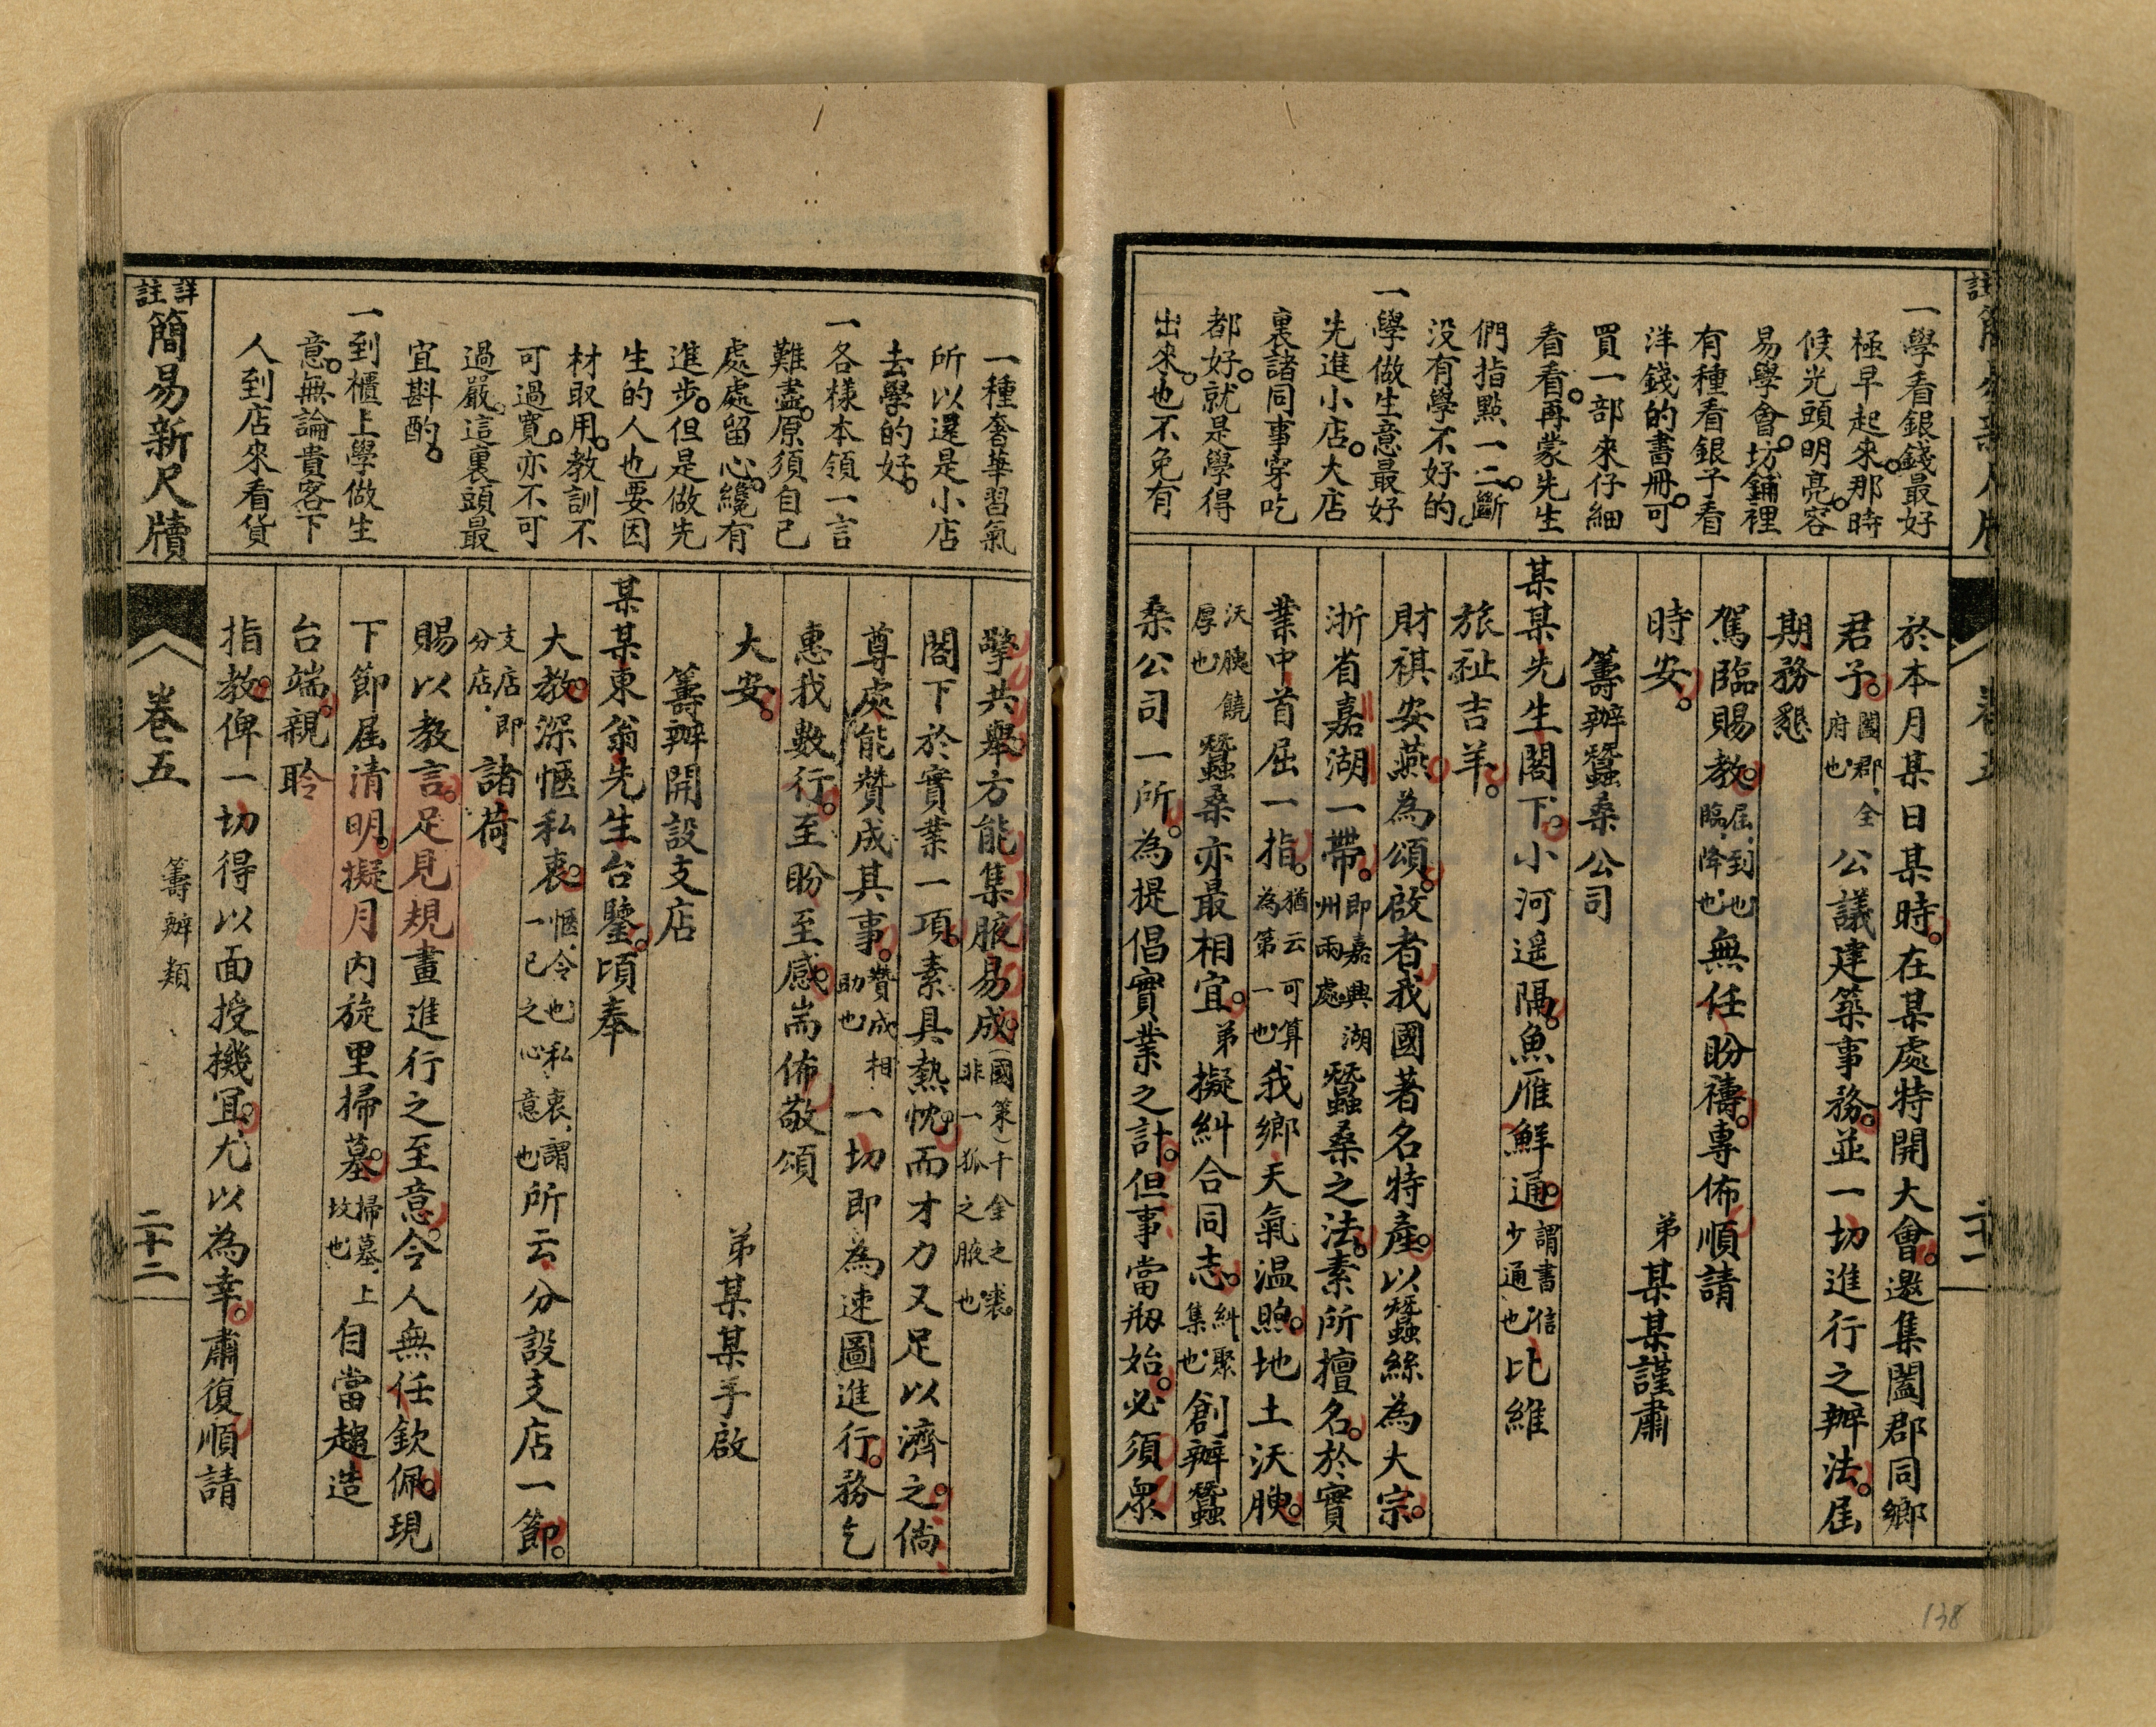 一學看銀錢最好
極早起來。那時
候光頭明亮。容
易學會。坊鋪裡
有種看銀子看
洋錢的書冊。可
買一部來仔細
看看。再蒙先生
們指點一二。斷
沒有學不好的。
一學做生意最好
先進小店。大店
裏諸同事穿吃
都好。就是學得
出來。也不免有
於本月某日某時。在某處特開大會。邀集闔郡同鄉
君子。闔郡、全府也公議建築事務。並一切進行之辦法。屆
期務懇
駕臨賜教。屆、到也臨、降也無任盼禱。專佈順請
時安。
弟某某謹肅
籌辦蠶桑公司
某某先生閣下。小河遥隔。魚雁鮮通。謂書信少通也比維
旅祉吉羊。
財祺安燕。為頌。啟者我國著名特產。以蠶絲為大宗。
浙省嘉湖一帶。即嘉興湖州兩處蠶桑之法。素所擅名。於實
業中首屈一指。猶云可算為第一也我鄉天氣温煦。地土沃腴。
沃腴饒厚也蠶桑亦最相宜。弟擬糾合同志。糾聚集也創辦蠶
桑公司一所。為提倡實業之計。但事當剏始。必須衆
二十一
138
一種奢華習氣
所以還是小店
去學的好。
一各樣本領一言
難盡。原須自己
處處留心。纔有
進步。但是做先
生的人也要因
材取用。教訓不
可過寬。亦不可
過嚴。這裏頭最
宜斟酌。
一到櫃上學做生
意。無論貴客下
人到店來看貨
擎共舉。方能集腋易成。(國策)千金之裘。非一狐之腋也
閣下於實業一項。素具熱忱。而才力又足以濟之。倘
尊處能贊成其事。贊成相助也一切即為速圖進行。務乞
惠我數行。至盼至感。耑佈敬頌
大安。
弟某某手啟
籌辦開設支店
某某東翁先生台鑒。頃奉
大教。深愜私衷。愜、令也私衷、謂一己之心意也所云分設支店一節。
支店即分店諸荷
賜以教言。足見規畫進行之至意。令人無任欽佩。現
下節屆清明。擬月內旋里掃墓。掃墓、上坟也自當趨造
台端。親聆
指教。俾一切得以面授機宜。尤以為幸。肅復順請
詳註簡易新尺牘
卷五
籌辦類
二十二